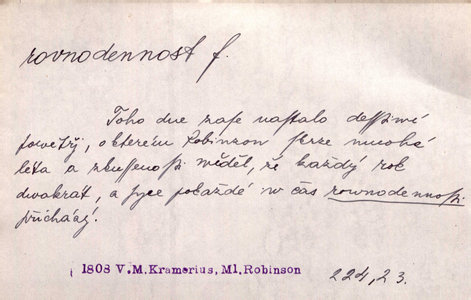 rovnodennost f.
Toho dne zase nastalo dessťiwé
powětřj, o kterém Robinzon skrze mnohá
léta a zkussenosti wěděl, že každý rok
dwakrát, a syce pokaždé w čas rownodennosti
přicházý.
1808 V.M.Kramerius, Ml.Robinson
224,23.